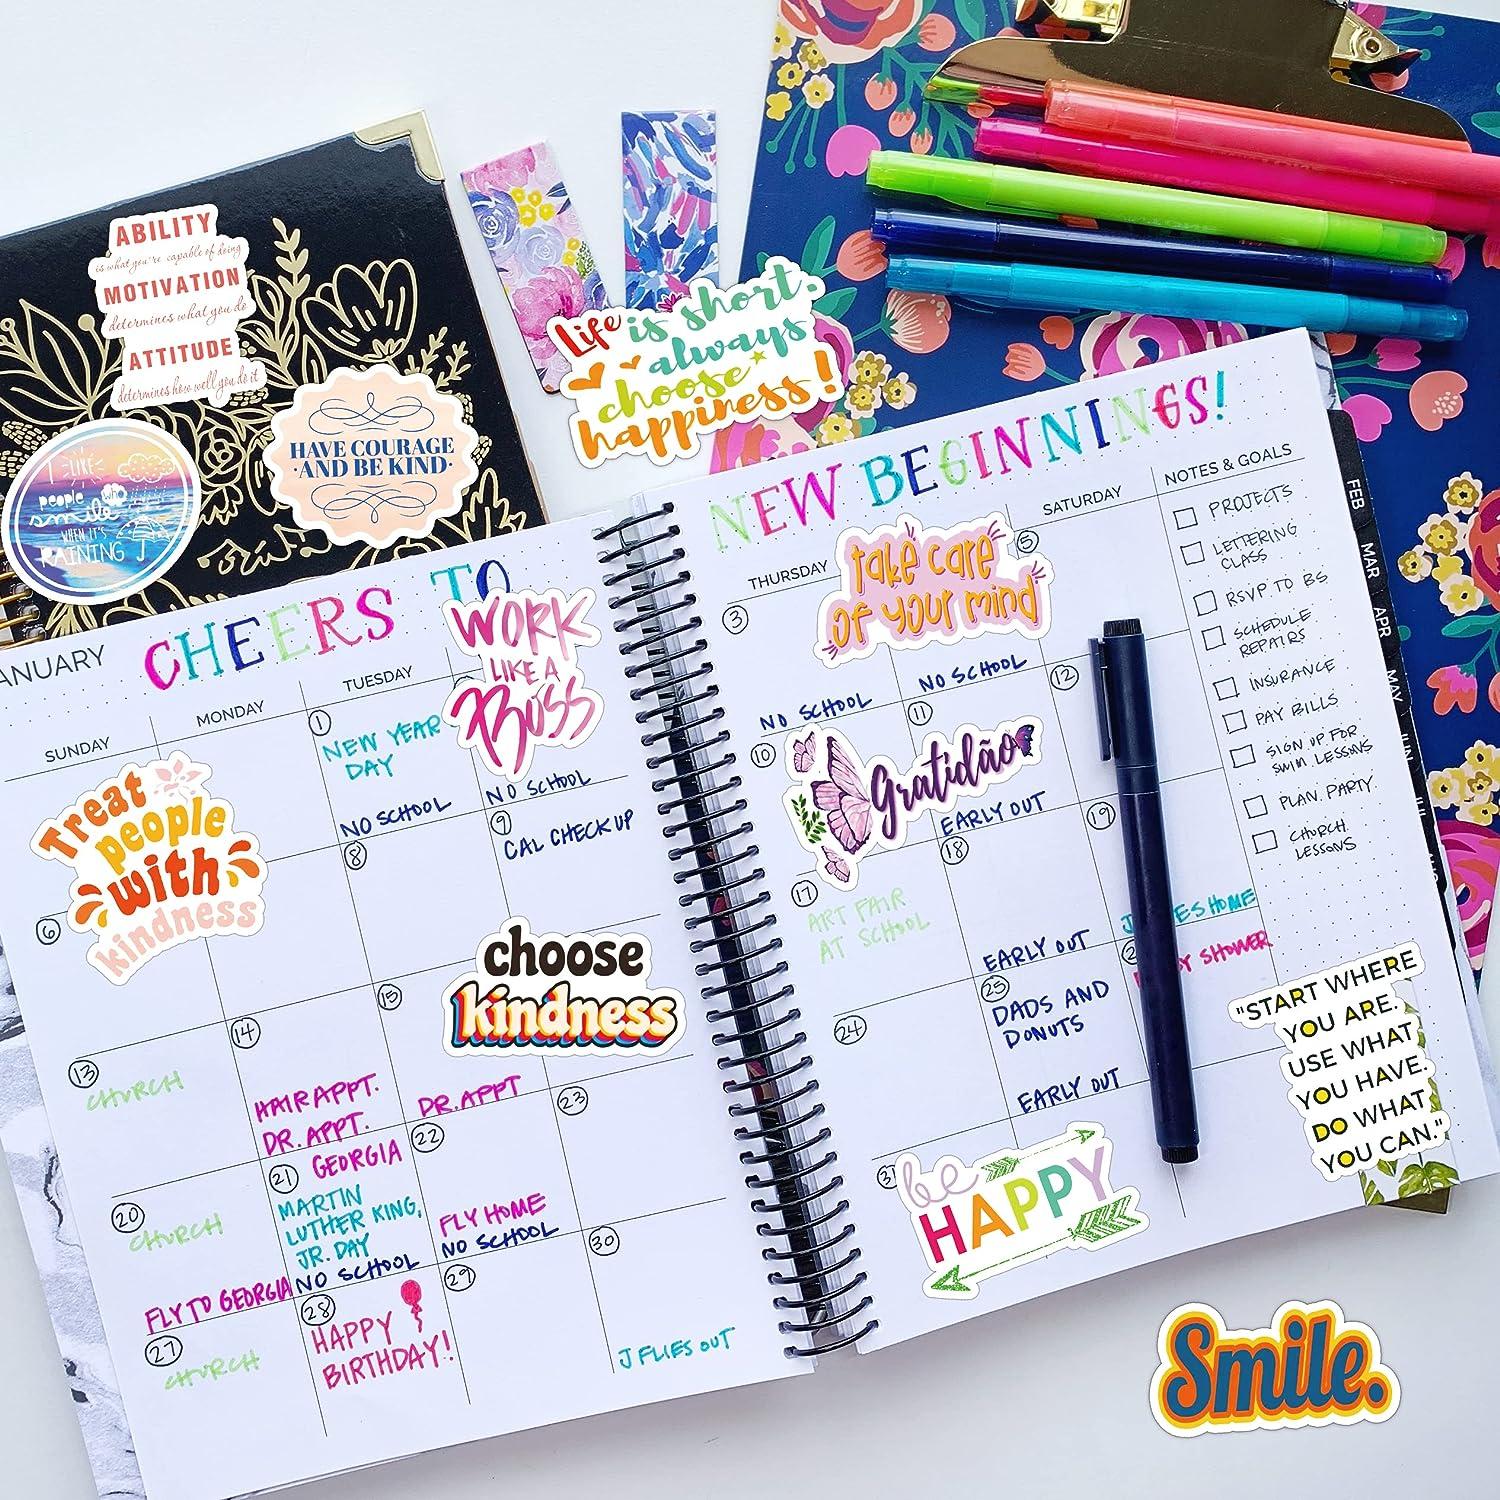 ABILITY
is what you're capable of doing
MOTIVATION
determines what you do
ATTITUDE
determines how well you do it
HAVE COURAGE
·AND BE KIND·
I LIKE
people who
smile
WHEN IT'S
RAINING
Life is short.
always
choose
happiness!
CHEERS TO
WORK
LIKE A
BOSS
ANUARY
SUNDAY
MONDAY
TUESDAY
1
NEW YEAR
DAY
NO SCHOOL
NO SCHOOL
Treat
people
with
kindness
6
8
9
CAL CHECK UP
choose
kindness
13
CHURCH
14
HAIR APPT.
DR. APPT.
15
DR. APPT
20
CHURCH
FLY TO GEORGIA
21
GEORGIA
MARTIN
LUTHER KING,
JR. DAY
NO SCHOOL
22
FLY HOME
NO SCHOOL
23
27
CHURCH
28
HAPPY
BIRTHDAY!
29
30
J FLIES OUT
NEW BEGINNINGS!
THURSDAY
SATURDAY
NOTES & GOALS
take care
of your mind
3
NO SCHOOL
NO SCHOOL
5
10
Gratidão
11
EARLY OUT
12
17
ART FAIR
AT SCHOOL
18
EARLY OUT
19
HOME
SHOWER
24
25
DADS AND
DONUTS
EARLY OUT
31
be
HAPPY
PROJECTS
LETTERING
CLASS
RSVP TO BS
SCHEDULE
REPAIRS
INSURANCE
PAY BILLS
SIGN UP FOR
SWIM LESSONS
PLAN PARTY
CHURCH
LESSONS
FEB
MAR
APR
MAY
JUN
JUL
"START WHERE
YOU ARE.
USE WHAT
YOU HAVE.
DO WHAT
YOU CAN."
Smile.